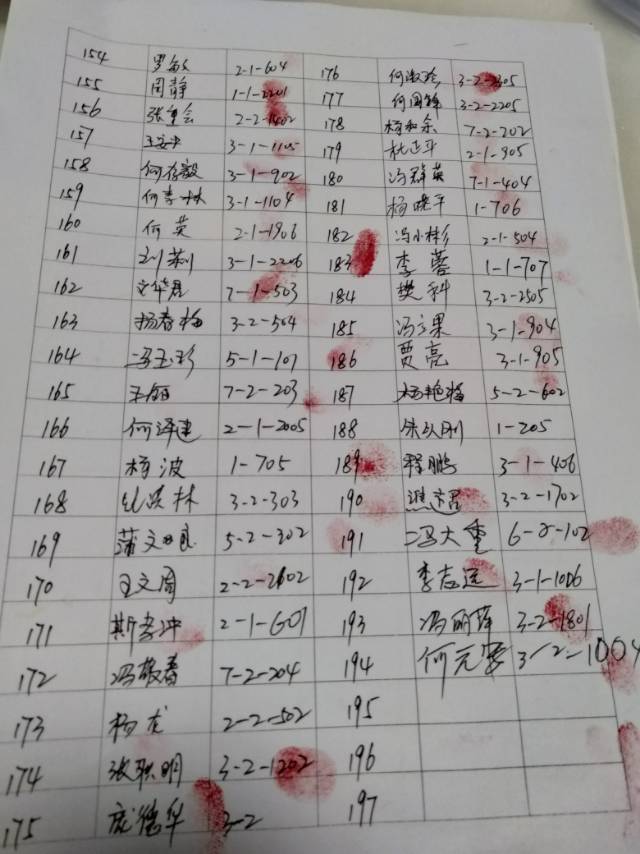 154 罗敏 2-1-604 176 何淑珍 3-2-2305
155 周静 1-1-2201 177 何国锋 3-2-2205
156 2-2-1402 178 7-2-202
157 3-1-1105 179 杜正平 2-1-905
158 何存毅 3-1-902 180 冯群英 7-1-404
159 何季林 3-1-1104 181 杨晓平 1-706
160 何英 2-1-1906 182 冯小彬 2-1-504
161 3-1-2206 183 李蓉 1-1-707
162 文华君 7-1-503 184 樊科 3-2-2505
163 杨春梅 3-2-504 185 3-1-904
164 冯玉珍 5-1-101 186 贾亮 3-1-905
165 王丽 7-2-203 187 杨艳梅 5-2-602
166 何泽建 2-1-2005 188 1-205
167 杨波 1-705 189 程鹏 3-1-406
168 3-2-303 190 3-2-1702
169 蒲文良 5-2-302 191 冯大重 6-2-102
170 王文周 2-2-2602 192 李志远 3-1-1006
171 斯孝冲 2-1-601 193 冯丽萍 3-2-1801
172 冯敬春 7-2-204 194 3-2-1004
173 杨龙 2-2-502 195
174 张联明 3-2-1202 196
175 庞德华 3-2 197